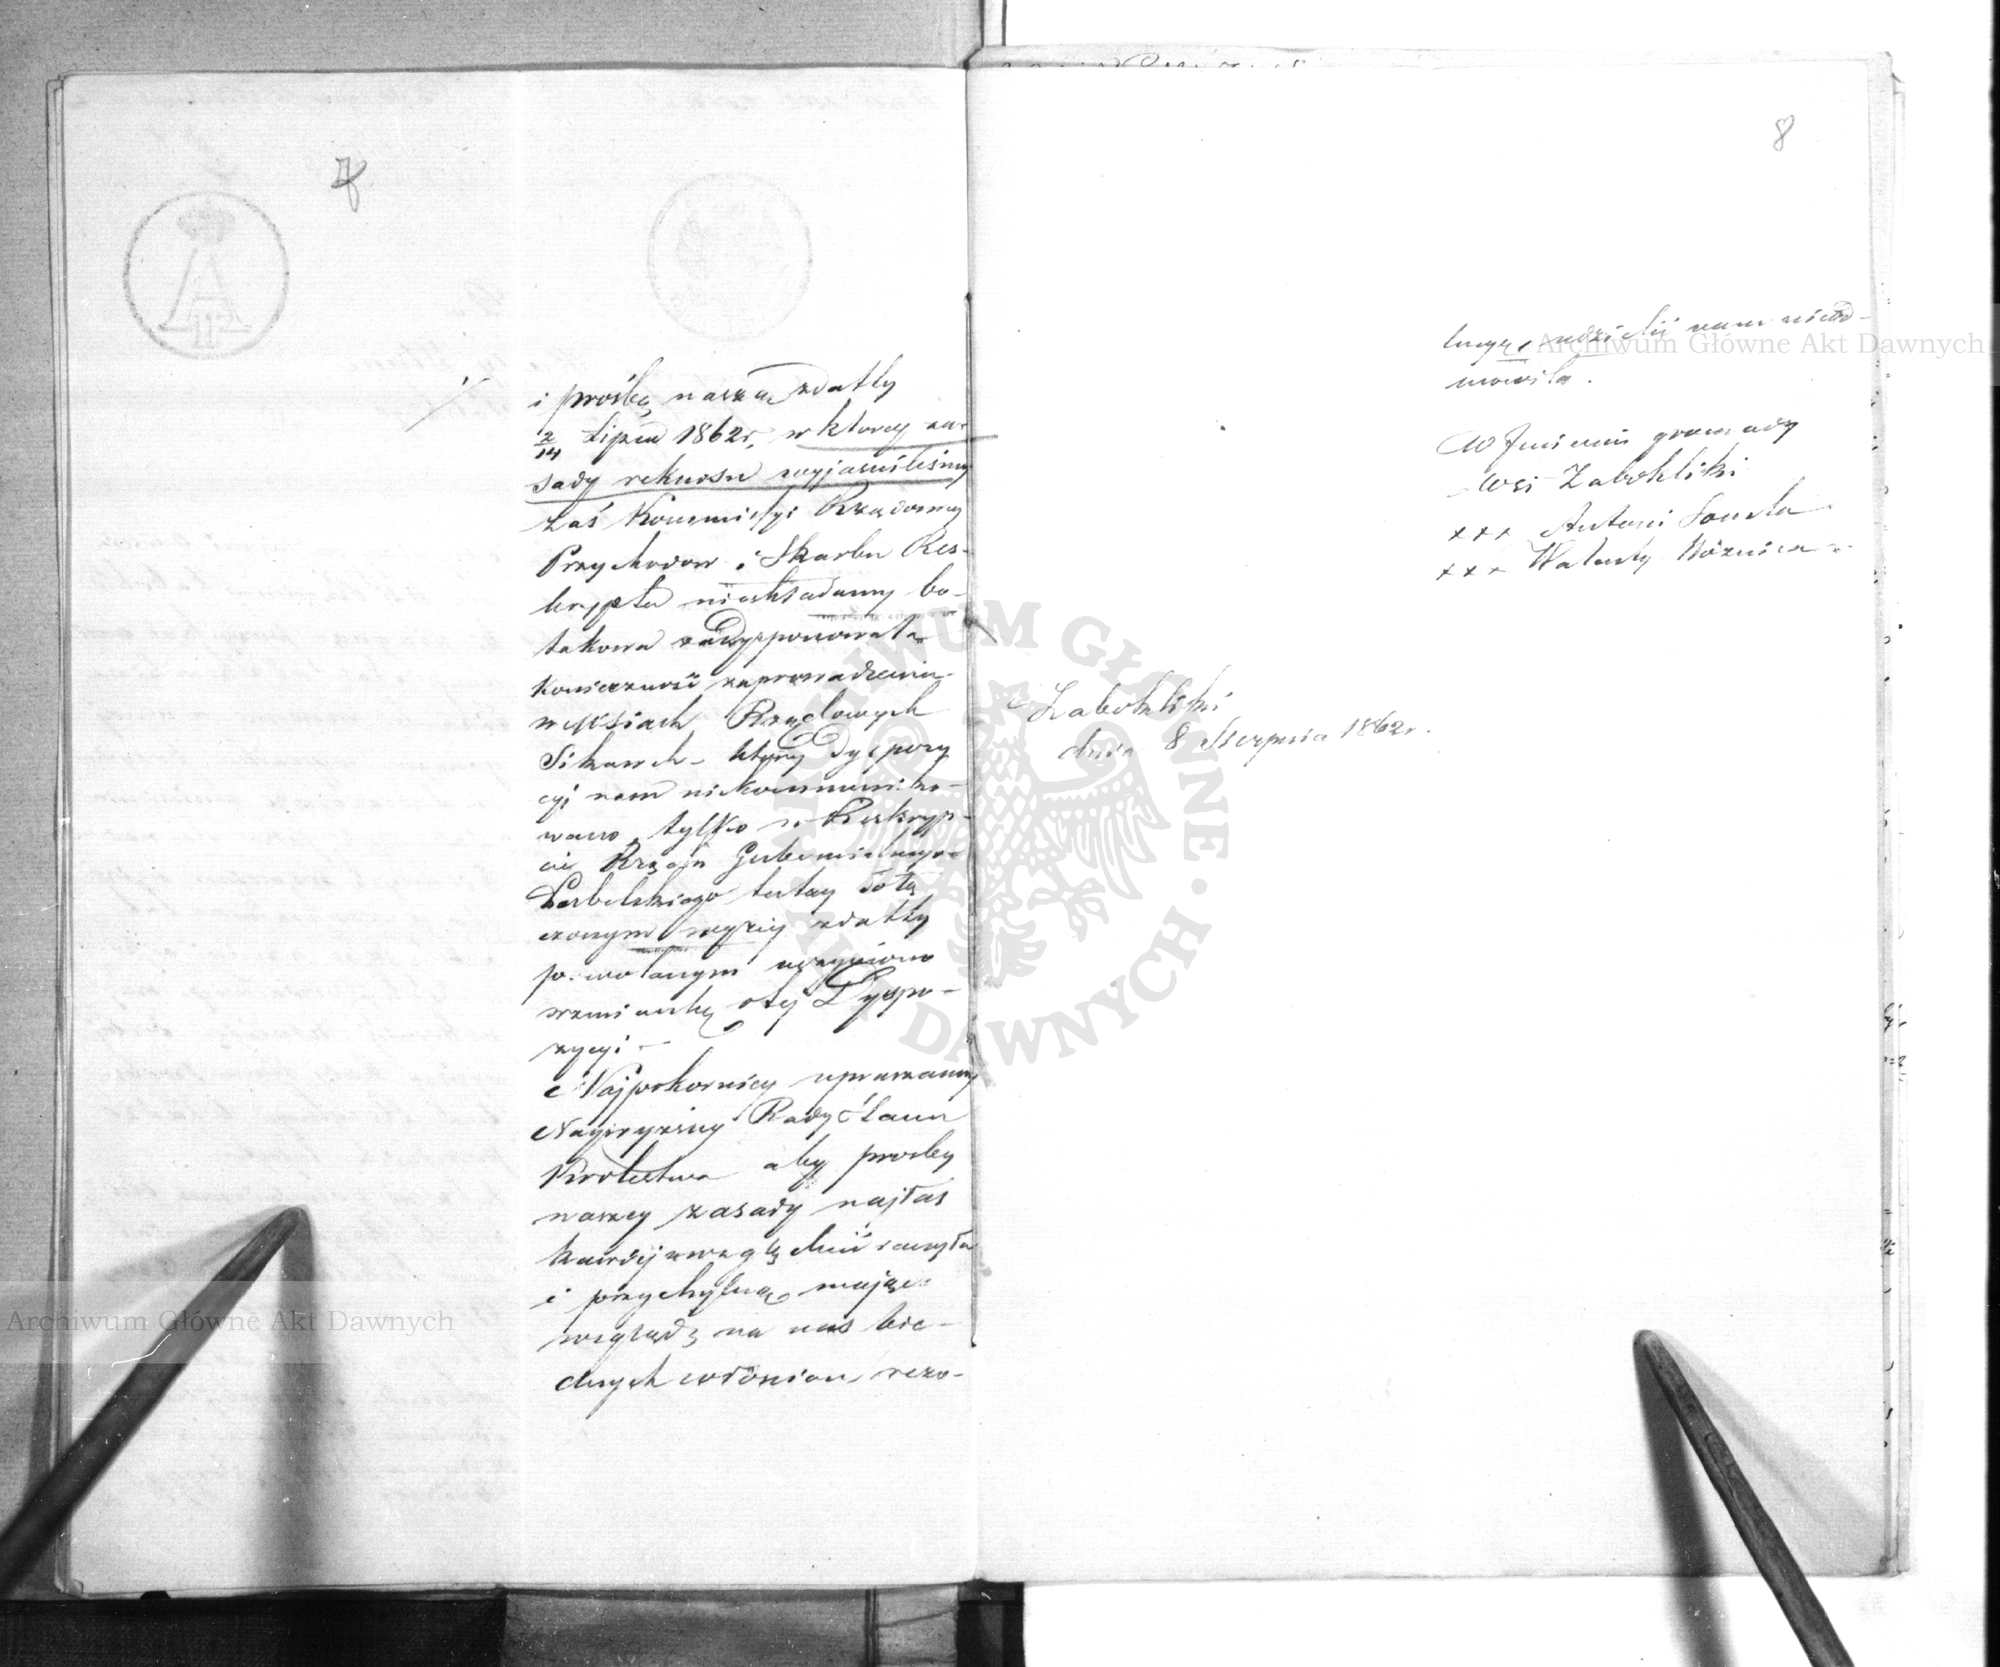 7
i prośbę naszą z daty
2/14 Lipca 1862 r, w ktorey za-
sady rekursu wyjaśniliśmy
zaś Kommissyi Rządowey
Przychodow i Skarbu Res-
kryptu nieskładamy bo
takowa zadysponowała
konieczność zaprowadzenia
we Wsiach Rządowych
Sikawek - ktory dyspozy
cyi nam niekommuniko-
wano tylko w Reskryp-
cie Rządu Gubernialnego
Lubelskiego tutay dołą
czonym wyżey z daty
powołanym uczyniono
wzmiankę o tej Dyspo-
zycyi -
Najpokorniey upraszamy
Naywyższey Rady Stanu
Krolestwa aby prośby
naszey zasady najłas
kawszej uwagi
i przychylną mając
wzgląd na nas bie-
dnych włościan rezo-
8
lucyę udzielić nam nieod-
mowiła.
W Imieniu gromady
Wsi Zabokliki
xxx Antoni
xxx Walenty
Zabokliki
dnia 8 Sierpnia 1862 r.
A II
Archiwum Główne Akt Dawnych
Archiwum Główne Akt Dawnych
ARCHIWUM GŁÓWNE AKT DAWNYCH